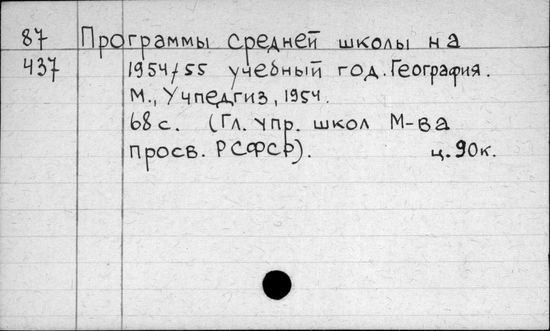 87 Программы средней школы на
437 1954/55 учебный год. География.
М., Учпедгиз, 1954.
68 с. (Гл. упр. школ М-ва
просв. РСФСР). ц. 90 к.